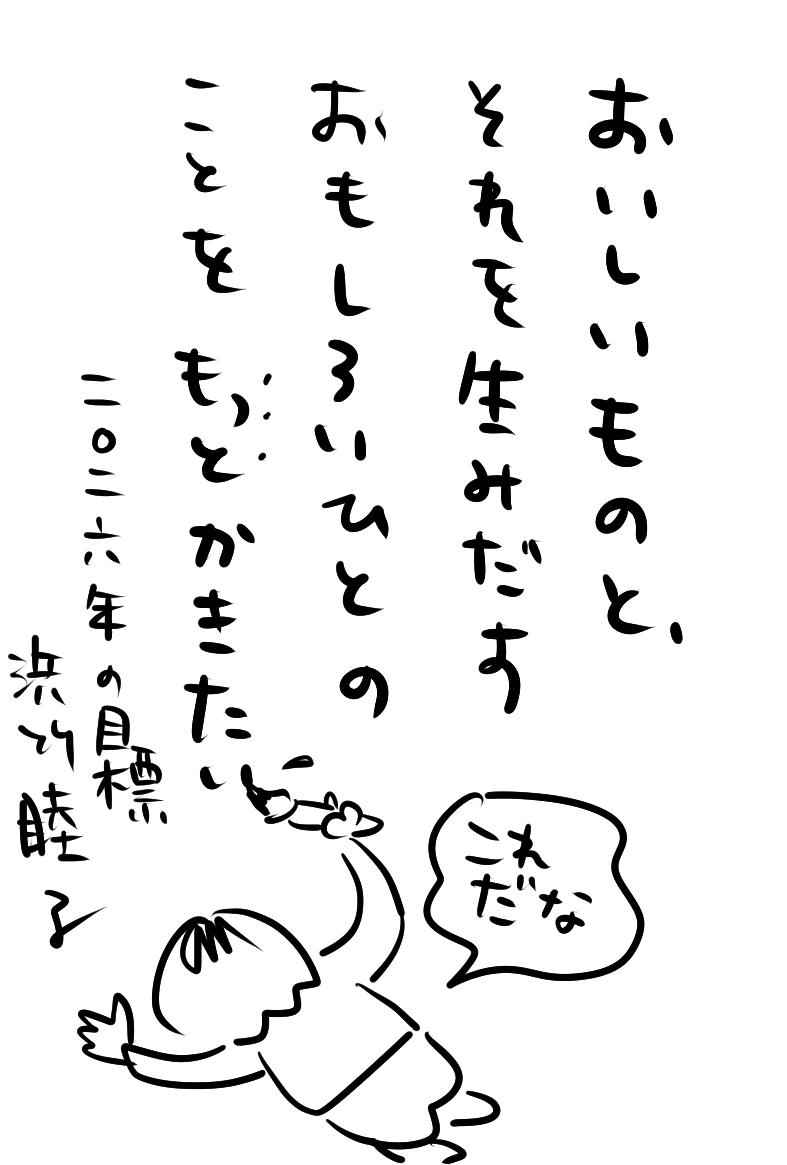 おいしいものと、
それを生みだす
おもしろいひとの
ことを もっとかきたい
二〇二六年の目標
浜竹睦子
これ
だな